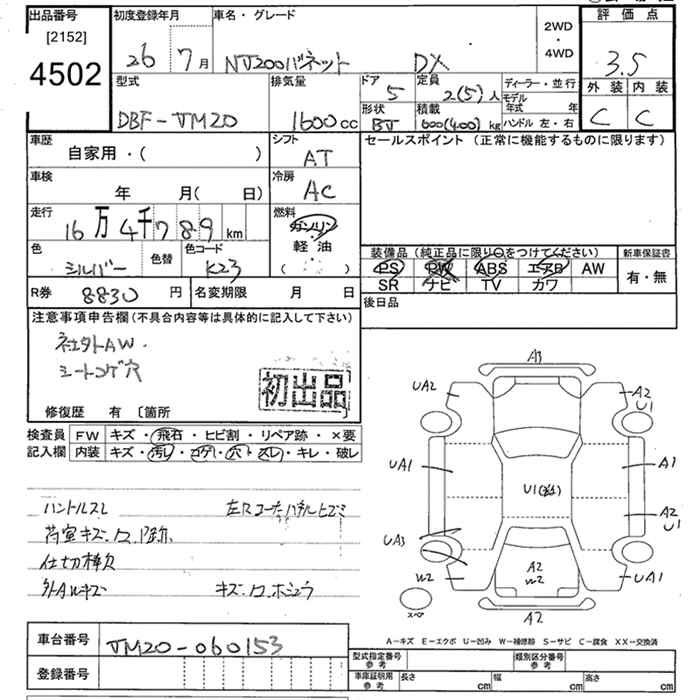 出品番号
[2152]
4502
初度登録年月
26年 7月
車名・グレード
NV200バネット DX
2WD
・
4WD
評価点
3.5
型式
DBF-VM20
排気量
1600cc
ドア
5
定員
2(5)人
ディーラー・並行
モデル年式 年
外装 内装
C C
形状
BV
積載
600(400)kg
ハンドル 左・右
車歴
自家用・( )
シフト
AT
セールスポイント (正常に機能するものに限ります)
車検
年 月( 日)
冷房
AC
走行
16万4千789km
燃料
ガソリン
軽油
( )
色
シルバー
色替
色コード
K23
装備品 (純正品に限り〇をつけてください)
新車保証書
PS PW ABS エアB AW
有・無
SR ナビ TV カワ
R券 8830円
名変期限 月 日
後日品
注意事項申告欄 (不具合内容等は具体的に記入して下さい)
社外AW.
シートコゲ穴
初出品
修復歴 有 [箇所
検査員
記入欄
FW キズ・飛石・ヒビ割・リペア跡・×要
内装 キズ・汚レ・コゲ・穴・スレ・キレ・破レ
ハンドルスレ 左Rコーナーパネルヒズミ
荷室キズ.ロ.跡
仕切棒欠
外AWキズ キズ.ロ.ホシュウ
A3
UA2
A2
U1
UA1
A1
U1
A2
U1
UA3
W2
A2
W2
UA1
スペア
A2
A-キズ E-エクボ U-凹み W-補修跡 S-サビ C-腐食 XX-交換済
車台番号
VM20-060153
登録番号
型式指定番号
参考
類別区分番号
参考
車庫証明用
参考
長さ cm
幅 cm
高さ cm